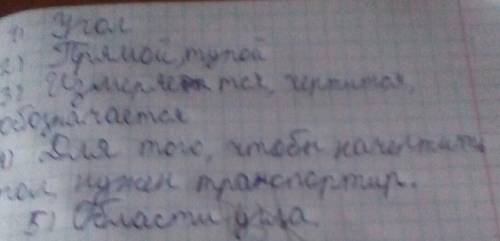 1) Угол
2) Прямой, тупой
3) Измеряется, чертится,
обозначается
4) Для того, чтобы начертить
гол нужен транспортир.
5) Области угла